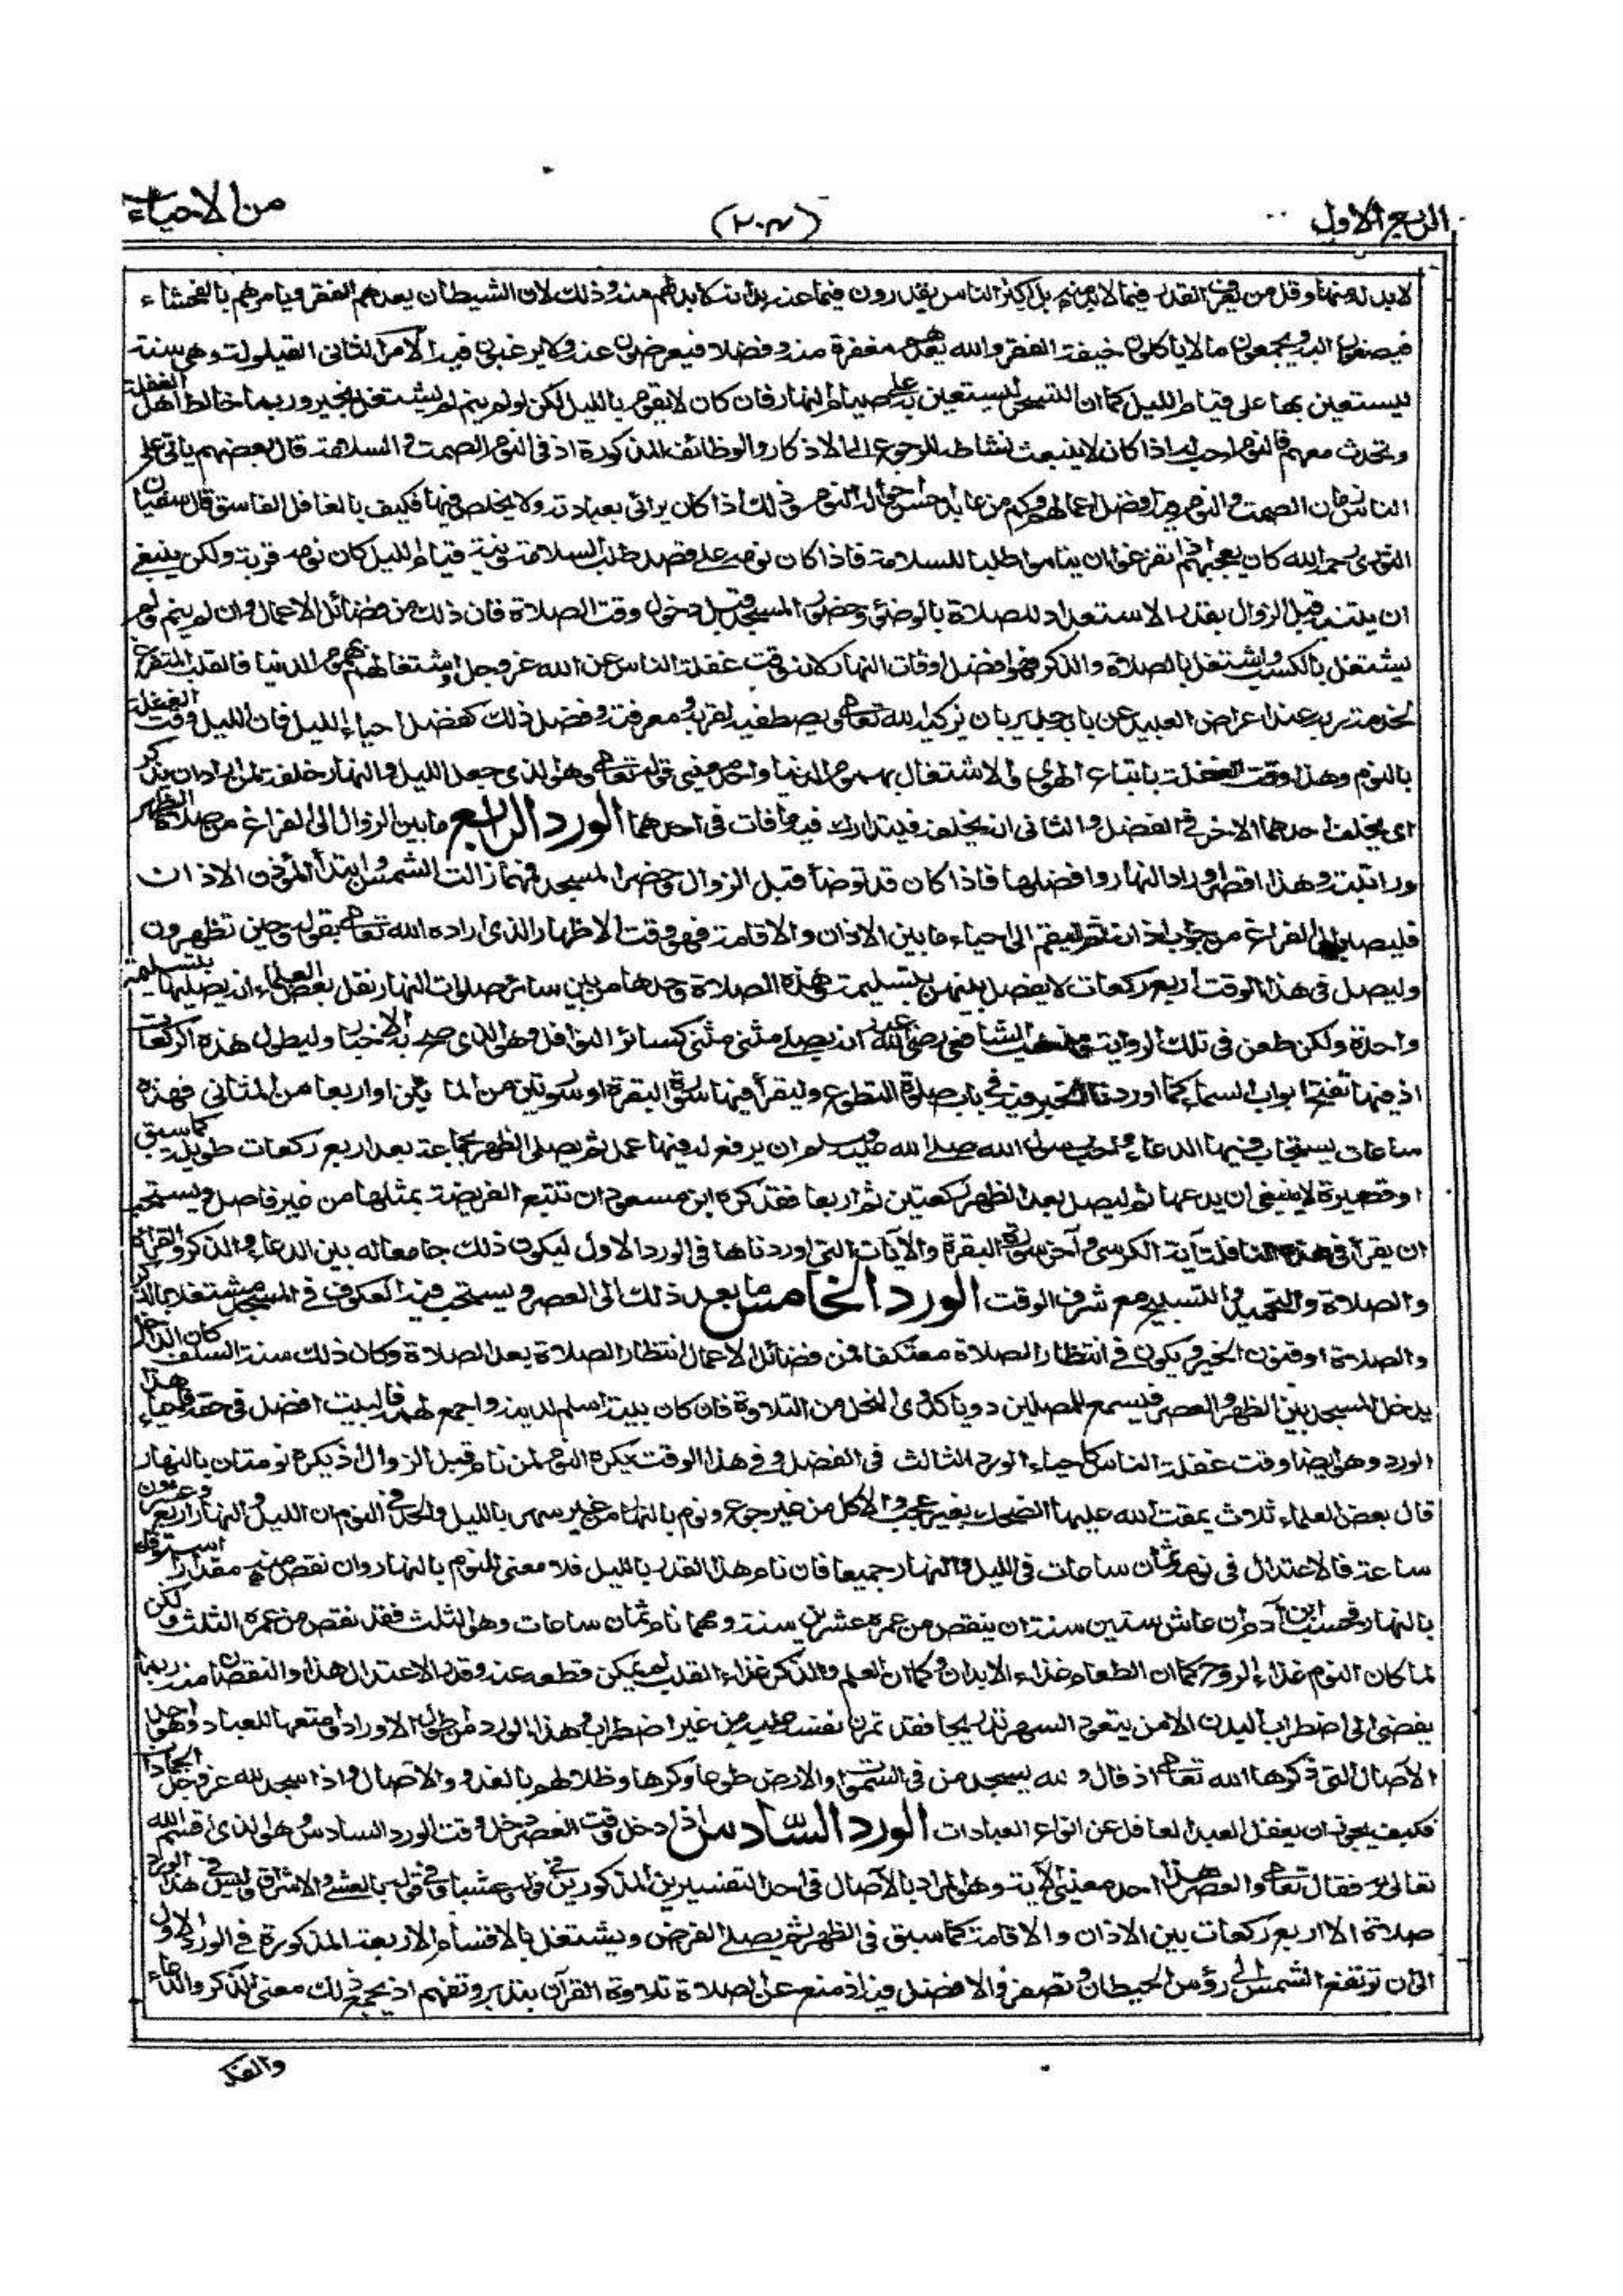 الربع الاول (٢٠٣) من الاحياء
لابد له منها وقل من يعرف القدر فيما لابد منه بل اكثر الناس يقدرون فيما عنه بد انه لابد لهم منه وذلك لان الشيطان يعدهم الفقر ويامرهم بالفحشاء
فيصغون اليه ويجمعون مالا ياكلون خيفة الفقر والله يعدهم مغفرة منه وفضلا فيعرضون عنه ولا يرغبون فيه الامر الثانى القيلولة وهى سنة
ليستعين بها على قيام الليل كما ان التسحر ليستعين به على صيام النهار فان كان لا يقوم بالليل لكن لو لم ينم لم يشتغل بخير وربما خالط اهل الغفلة
وتحدث معهم فالنوم احب له اذا كان لا ينبعث نشاطه للرجوع الى الاذكار والوظائف المذكورة اذ فى النوم الصمت والسلامة قال بعضهم ياتى على
الناس زمان الصمت والنوم فيه افضل اعمالهم وكم من عابد احسن احواله النوم وذلك اذا كان يرائى بعبادته ولا يخلص فيها فكيف بالغافل الفاسق قال سفيان
الثورى رحمه الله كان يعجبهم اذا تفرغوا ان يناموا طلبا للسلامة فاذا كان نومه على قصد طلب السلامة ونية قيام الليل كان نومه قربة ولكن ينبغى
ان يتنبه قبل الزوال بقدر الاستعداد للصلاة بالوضوء وحضور المسجد قبل دخول وقت الصلاة فان ذلك من فضائل الاعمال وان لم ينم ولم
يشتغل بالكسب واشتغل بالصلاة والذكر فهو افضل اوقات النهار لانه وقت غفلة الناس عن الله عز وجل واشتغالهم بهموم الدنيا فالقلب المتفرغ
لخدمة ربه عند اعراض العبيد عن بابه جدير بان يزكيه الله تعالى ويصطفيه لقربه ومعرفته وفضل ذلك كفضل احياء الليل فان الليل وقت الغفلة
بالنوم وهذا وقت الغفلة باتباع الهوى والاشتغال بهموم الدنيا واحد معنيى قوله تعالى وهو الذى جعل الليل والنهار خلفة لمن اراد ان يذكر
اى يخلف احدهما الاخر فى الفضل والثانى انه يخلفه فيتدارك فيه ما فات فى احدهما الورد الرابع ما بين الزوال الى الفراغ من صلاة الظهر
وراتبته وهذا اقصر اوراد النهار وافضلها فاذا كان قد توضأ قبل الزوال وحضر المسجد فمهما زالت الشمس وابتدأ المؤذن الاذان
فليصبر الى الفراغ من جواب اذانه ثم ليقم الى احياء ما بين الاذان والاقامة فهو وقت الاظهار الذى اراده الله تعالى بقوله وحين تظهرون
وليصل فى هذا الوقت اربع ركعات لا يفصل بينهن بتسليمة وهذه الصلاة وحدها من بين سائر صلوات النهار نقل بعض العلماء انه يصليها بتسليمة
واحدة ولكن طعن فى تلك الرواية ومذهب الشافعى رضى الله عنه انه يصلى مثنى مثنى كسائر النوافل وهو الذى صح به الاخبار وليطول هذه الركعات
اذ فيها تفتح ابواب السماء كما اوردنا الخبر فيه فى باب صلوة التطوع وليقرأ فيها سورة البقرة او سورتين من المائين او اربعا من المثانى فهذه
ساعات يستجاب فيها الدعاء واحب رسول الله صلى الله عليه وسلم ان يرفع له فيها عمل ثم يصلى الظهر بجماعة بعد اربع ركعات طويلة كما سبق
او قصيرة لا ينبغى ان يدعها ثم ليصل بعد الظهر ركعتين ثم اربعا فقد كره ابن مسعود ان تتبع الفريضة بمثلها من غير فاصل ويستحب
ان يقرأ فى هذه النافلة آية الكرسى وآخر سورة البقرة والآيات التى اوردناها فى الورد الاول ليكون ذلك جامعا له بين الدعاء والذكر والقراءة
والصلاة والتحميد والتسبيح مع شرف الوقت الورد الخامس ما بعد ذلك الى العصر ويستحب فيه العكوف فى المسجد مشتغلا بالذكر
والصلاة او فنون الخير ويكون فى انتظار الصلاة معتكفا فمن فضائل الاعمال انتظار الصلاة بعد الصلاة وكان ذلك سنة السلف كان الداخل
يدخل المسجد بين الظهر والعصر فيسمع للمصلين دويا كدوى النحل من التلاوة فان كان بيته اسلم لدينه واجمع لهمه فالبيت افضل فى حقه فاحياء هذا
الورد وهو ايضا وقت غفلة الناس كاحياء الورد الثالث فى الفضل وفى هذا الوقت يكره النوم لمن نام قبل الزوال اذ يكره نومتان بالنهار
قال بعض العلماء ثلاث يمقت الله عليها الضحك بغير عجب والاكل من غير جوع ونوم بالنهار من غير سهر بالليل والحد فى النوم ان الليل والنهار اربع وعشرون
ساعة فالاعتدال فى نومه ثمان ساعات فى الليل والنهار جميعا فان نام هذا القدر بالليل فلا معنى للنوم بالنهار وان نقص منه مقدارا استوفاه
بالنهار فحسب ابن آدم ان عاش ستين سنة ان ينقص من عمره عشرين سنة ومهما نام ثمان ساعات وهو الثلث فقد نقص من عمره الثلث ولكن
لما كان النوم غذاء الروح كما ان الطعام غذاء الابدان وكما ان العلم والذكر غذاء القلب لم يمكن قطعه عنه وقدر الاعتدال هذا والنقصان منه ربما
يفضى الى اضطراب البدن الا من يتعود السهر تدريجا فقد تمرن نفسه عليه من غير اضطراب وهذا الورد من اطول الاوراد وامتعها للعباد وهو احد
الآصال التى ذكرها الله تعالى اذ قال ولله يسجد من فى السموات والارض طوعا وكرها وظلالهم بالغدو والآصال واذا سجد لله عز وجل الجمادات
فكيف يجوز ان يغفل العبد العاقل عن انواع العبادات الورد السادس اذا دخل وقت العصر دخل وقت الورد السادس وهو الذى اقسم الله
تعالى به فقال تعالى والعصر هذا احد معنيى الآية وهو المراد بالآصال فى احد التفسيرين المذكورين فى قوله وعشيا وفى قوله بالعشى والاشراق وليس فى هذا الورد
صلاة الا اربع ركعات بين الاذان والاقامة كما سبق فى الظهر ثم يصلى الفرض ويشتغل بالاقسام الاربعة المذكورة فى الورد الاول
الى ان ترتفع الشمس الى رؤس الحيطان وتصفر والافضل فيه اذ منع عن الصلاة تلاوة القرآن بتدبر وتفهم اذ يجمع ذلك معنى الذكر والدعاء
والفكر